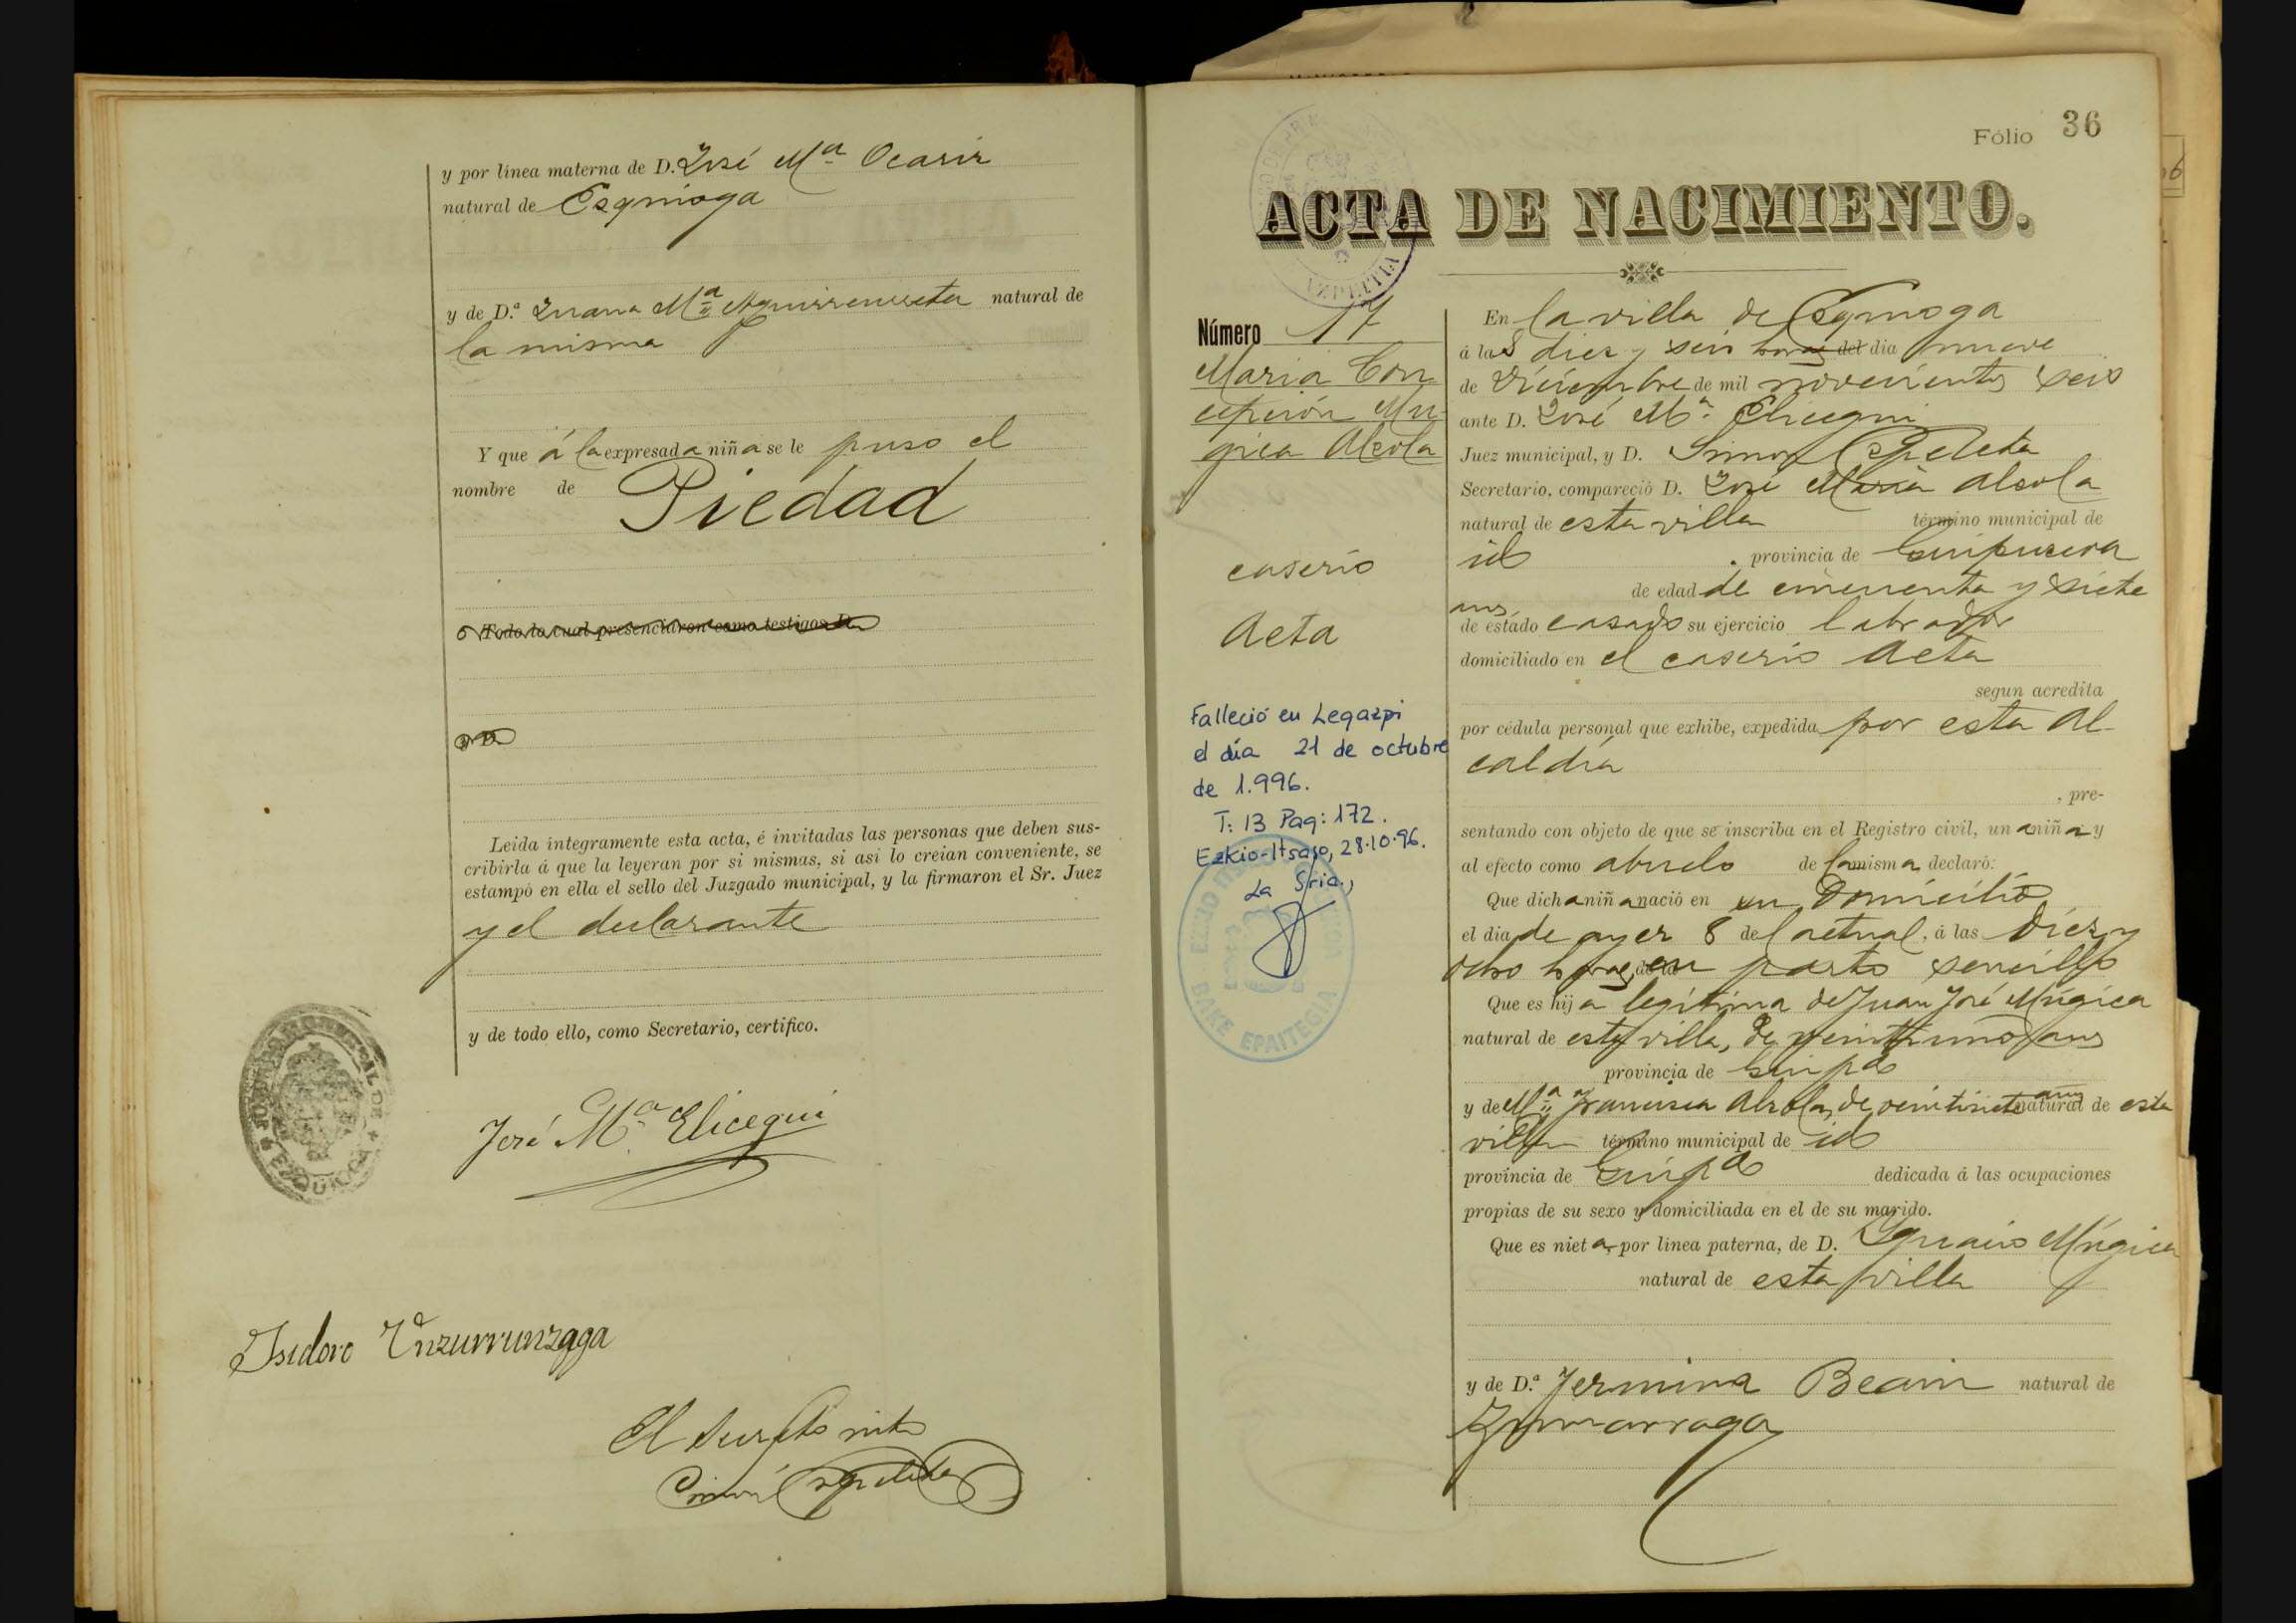 y por línea materna de D. José Mª Ocariz
natural de Ezquioga
y de D.ª Juana Mª Aguirreurreta natural de
la misma
Y que á la expresada niña se le puso el
nombre de Piedad
Todo lo cual presenciaron como testigos D.
y D.
Leida íntegramente esta acta, é invitadas las personas que deben sus-
cribirla á que la leyeran por si mismas, si así lo creían conveniente, se
estampó en ella el sello del Juzgado municipal, y la firmaron el Sr. Juez
y el declarante
y de todo ello, como Secretario, certifico.
José Mª Elicegui
Isidoro Unzurrunzaga
El Secreto into
Simón Ezpeleta
Fólio 36
ACTA DE NACIMIENTO.
AZPEITIA
Número 17
Maria Con
cepción Mu-
gica Alzola
caserio
Aeta
Falleció en Legazpi
el día 21 de octubre
de 1.996.
T: 13 Pag: 172.
Ezkio-Itsaso, 28.10.96.
La Sria.,
BAKE EPAITEGIA
En la villa de Ezquioga
á las diez y seis horas del dia nueve
de Diciembre de mil novecientos seis
ante D. José Mª Elicegui
Juez municipal, y D. Simon Ezpeleta
Secretario, compareció D. José Maria Alzola
natural de esta villa término municipal de
id provincia de Guipuzcoa
de edad de cincuenta y siete
años
de estado casado su ejercicio labrador
domiciliado en el caserio Aeta
segun acredita
por cédula personal que exhibe, expedida por esta Al-
caldía
, pre-
sentando con objeto de que se inscriba en el Registro civil, una niña y
al efecto como abuelo de la misma declaró:
Que dicha niña nació en su domicilio
el dia de ayer 8 del actual, á las diez y
ocho horas, de la en parto sencillo
Que es hija legítima de Juan José Múgica
natural de esta villa, de veintiuno años
provincia de Guipª
y de Mª Francisca Alzola, de veintisiete años natural de esta
villa término municipal de id
provincia de Guipª dedicada á las ocupaciones
propias de su sexo y domiciliada en el de su marido.
Que es nieta por línea paterna, de D. Ygnacio Múgica
natural de esta villa
y de D.ª Fermina Beain natural de
Zumarraga